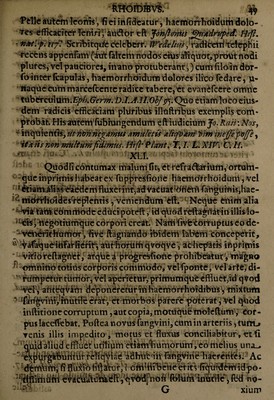 RHOIDIBVS. 49
Pelle autem leonis, si ei insideatur, haemorrhoidum dolo-
res efficaciter leniri, auctor est Jonstonus Quadruped. Hist.
nat. p. 117. Scribitque celeberr. Wedelius, radicem telephii
recens appensam (aut saltem nodos eius aliquot, prout nodi
plures, vel pauciores, in ano protuberant,) cum filo in dor-
so inter scapulas, haemorrhoidum dolores illico sedare, u-
naque cum marcescente radice tabere, et evanescere omne
tuberculum. Eph. Germ. D. I. A. II. Obs. Quo etiam loco eius-
dem radicis efficaciam pluribus illustribus exemplis com-
probat. His autem subiungendum est iudicium Jo. Raii: Nos,
inquientis, ut non negamus amuletis aliquam vim inesse posse,
ita iis non multum fidimus. Hist. Plant. T. I. L. XIV. C. II.
XLI.
Quodsi consumax malum sit, et refractarium, ortum-
que inprimis habeat ex suppressione haemorrhoidum, vel
etiam alias eaedem fluxerint, ad vacuationem sanguinis, hae-
morrhoides replemnis, veniendum est. Neque enim alia
via tam commode educi potest, id quod restagnat in illis lo-
cis, negotiumque corpori creat. Nam sive corruptus ocde-
venerit humor, sive stagnando
vitio restagnet, atque a progressione prohibeatur, magno
omnino totius corporis commodo, vel sponte, vel arte, di-
rumpetur tumor, vel aperietur, primumque effluet, id quod
vel, antequam deponeretur in haemorrhoidibus, mixtum
sangvini, inutile erat, et morbos parere poterat, vel quod
institione corruptum, aut copia, motuque molestum, cor-
pus lacessebat. Postea novus sangvini, cum in arteriis, tum
venis illis impedito, motus et fluxus conciliabitur, et si
quid aliud effluet ustium etiam humorum, eo melius una
expurgabuntur reliquiae adhuc in sangvine haerentes. Ac
demum, si fluxio fiat, ut omni habeat
quod non solum inutile, sed no-
G xium